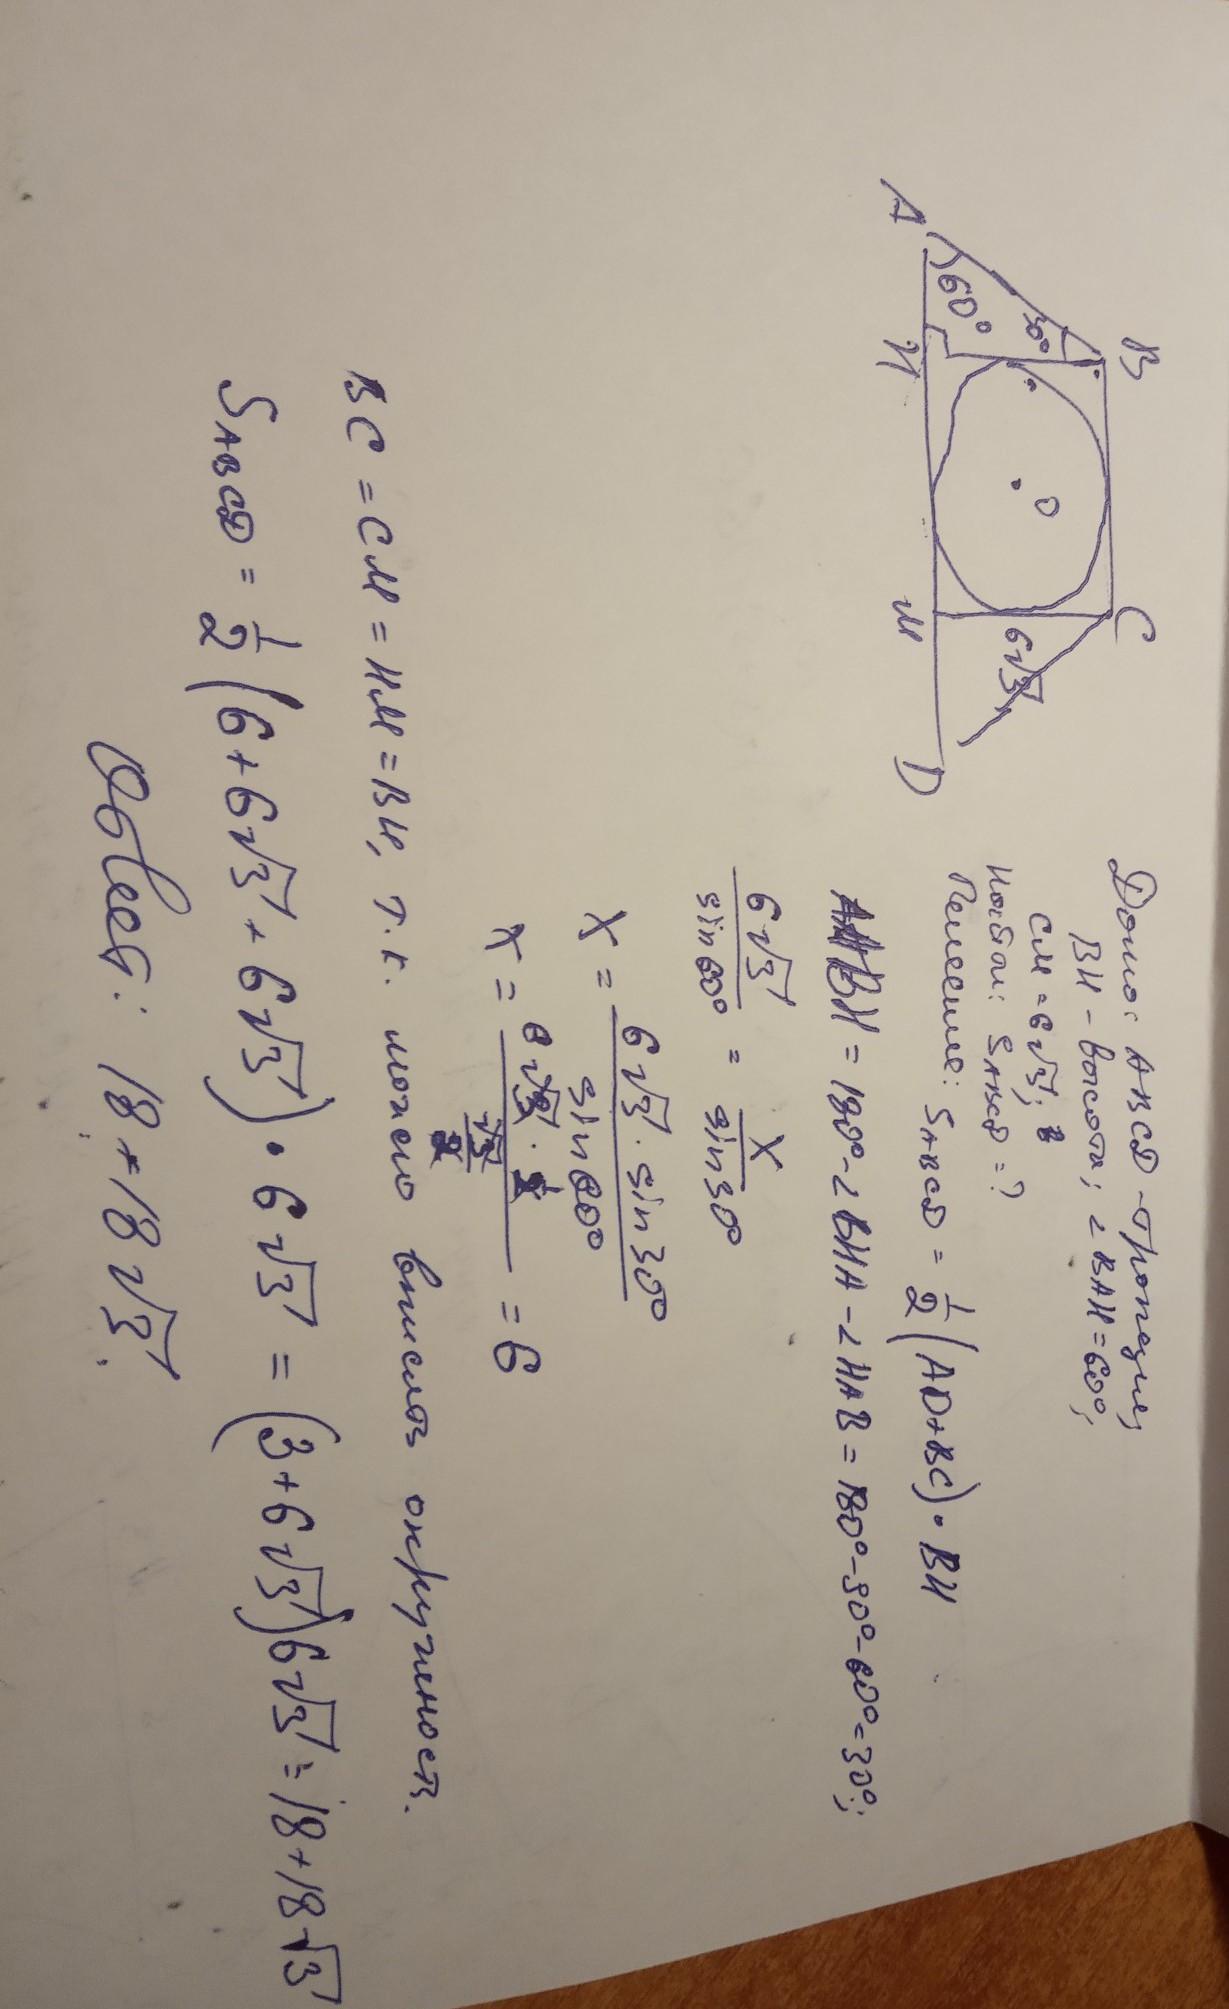 B
C
30°
O
6√3
60°
A
H
M
D
Дано: ABCD - трапеция,
BH - высота; ∠BAH = 60°,
CM = 6√3;
Найти: SABCD = ?
Решение: SABCD = 1/2 (AD + BC) · BH
ABH = 180° - ∠BHA - ∠HAB = 180° - 90° - 60° = 30°;
6√3 / sin60° = x / sin30°
x = 6√3 · sin30° / sin60°
x = 6√3 · 1/2 / √3/2 = 6
BC = CM = HM = BH, т.к. можно вписать окружность.
SABCD = 1/2 (6 + 6√3 + 6√3) · 6√3 = (3 + 6√3) 6√3 = 18 + 18√3
Ответ: 18 + 18√3.